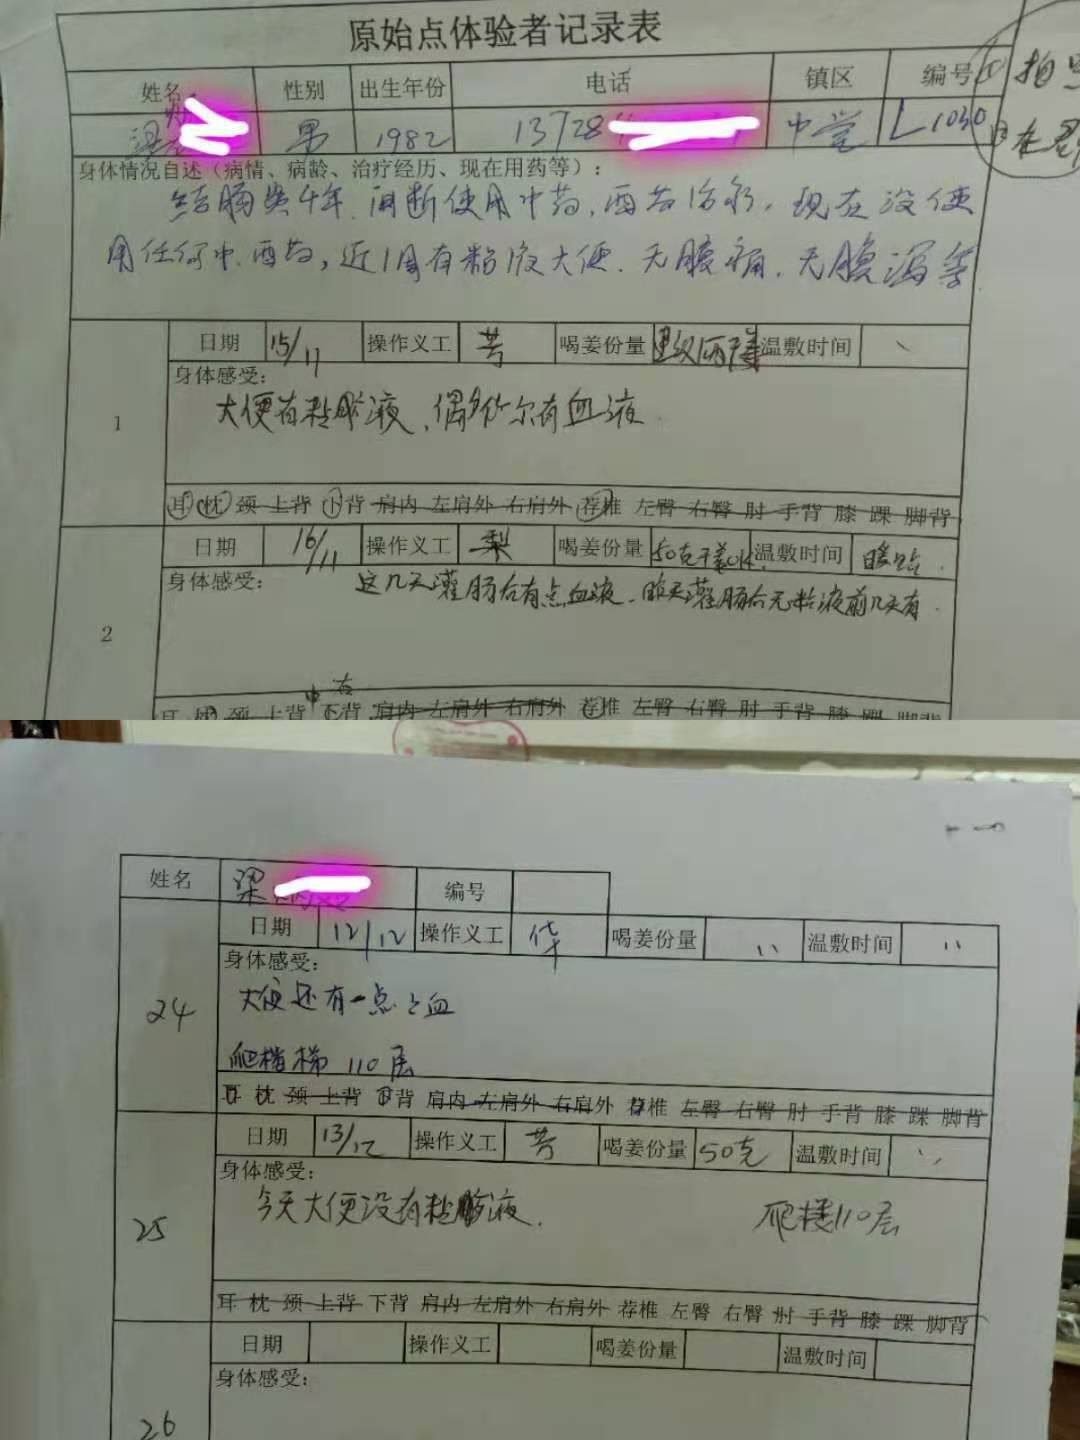 原始点体验者记录表
姓名 性别 出生年份 电话 镇区 编号
梁 男 1982 13728 中堂 L1030
身体情况自述（病情、病龄、治疗经历、现在用药等）：
结肠炎4年.间断使用中药,西药治疗,现在没使
用任何中.西药,近1周有粘液大便.无腹痛.无腹泻等
1
日期 15/11 操作义工 芳 喝姜份量 温敷时间 、
身体感受：
大便有粘胶液、偶尔有血液.
耳 枕 颈 上背 下背 肩内 左肩外 右肩外 荐椎 左臀 右臀 肘 手背 膝 踝 脚背
2
日期 16/11 操作义工 梨 喝姜份量 50克干姜 温敷时间
身体感受：
这几天灌肠后有点血液.昨天灌肠后无粘液前几天有.
中 右
耳 枕 颈 上背 下背 肩内 左肩外 右肩外 荐椎 左臀 右臀 肘 手背 膝 踝 脚背
姓名 梁 编号
24
日期 12/12 操作义工 华 喝姜份量 、、 温敷时间 、、
身体感受：
大便还有一点点血
爬楼梯 110层
耳 枕 颈 上背 下背 肩内 左肩外 右肩外 荐椎 左臀 右臀 肘 手背 膝 踝 脚背
25
日期 13/12 操作义工 芳 喝姜份量 50克 温敷时间 、、
身体感受：
今天大便没有粘胶液. 爬楼110层
耳 枕 颈 上背 下背 肩内 左肩外 右肩外 荐椎 左臀 右臀 肘 手背 膝 踝 脚背
26
日期 操作义工 喝姜份量 温敷时间
身体感受：